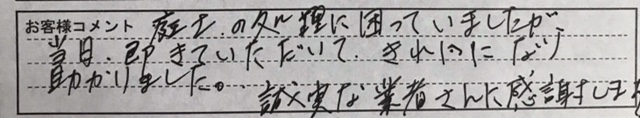 お客様コメント 庭土の処理に困っていましたが、
当日、即きていただいて、きれいになり
助かりました。
誠実な業者さんに感謝します